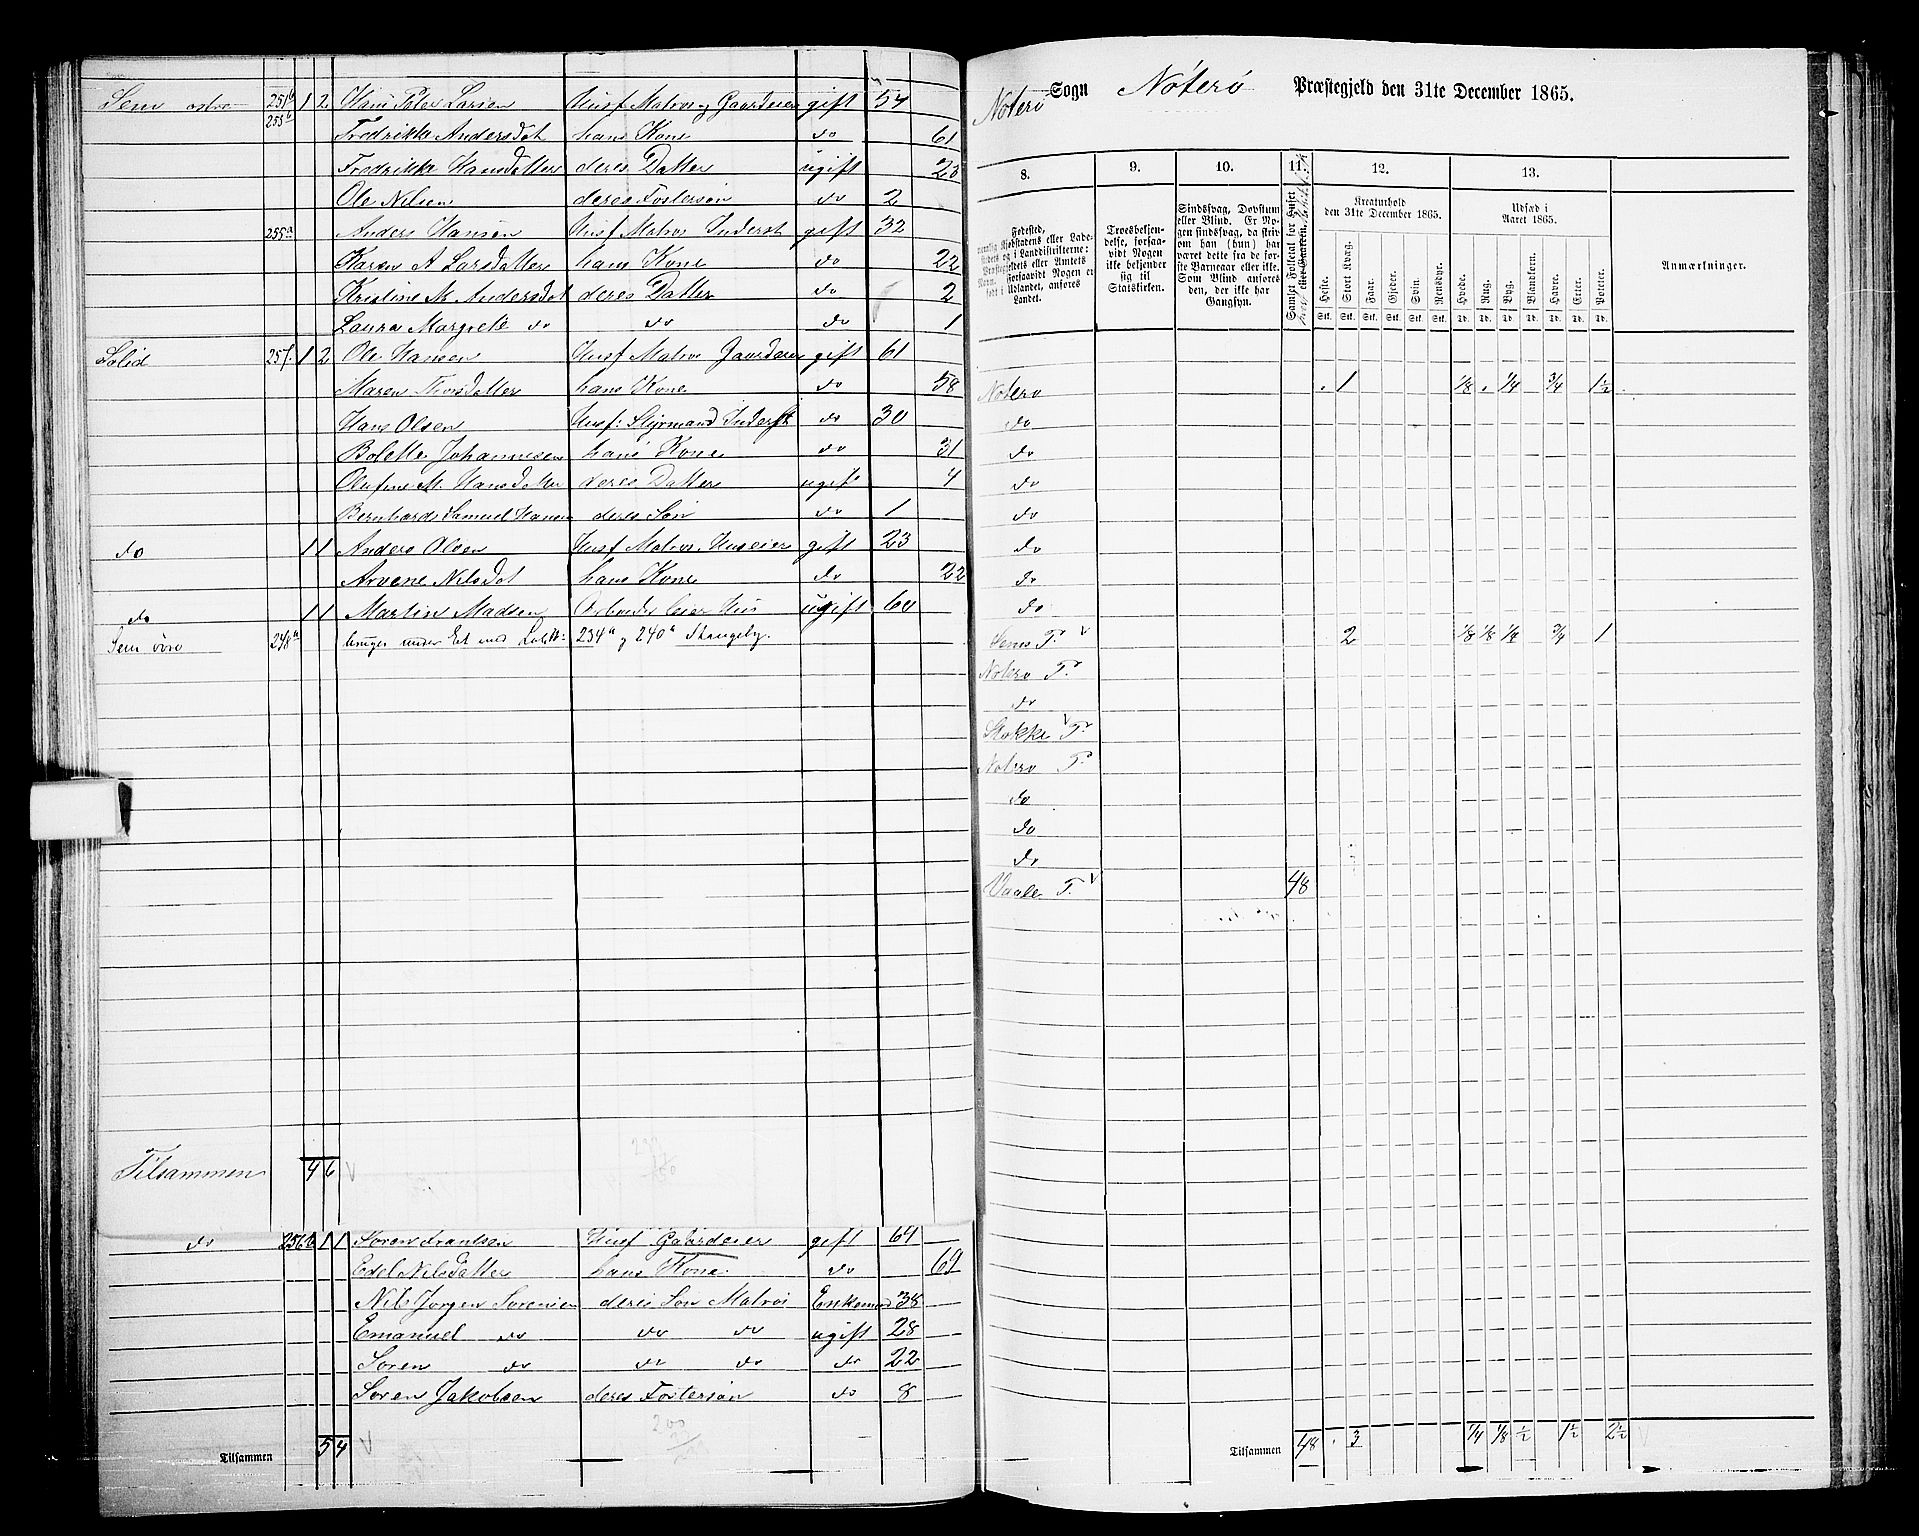 Sem østre 251b 1 2 Hans Peter Larsen Husf Matros og Gaardeier gift 54
253b Fredrikke Andersdot hans Kone do 61
Fredrikke Hansdatter deres Datter ugift 23
Ole Nilsen deres Fostersøn do 2
255a Anders Hansen Husf Matros Inderst gift 32
Karen A Larsdatter hans Kone do 22
Kristine M. Andersdot deres Datter do 2
Laura Margrete do do do 1
Solid 257. 1 2 Ole Hansen Husf Matros Gaardeier gift 61
Maren Thorsdatter hans Kone do 58
Hans Olsen Husf: Styrmand Inderst do 30
Bolette Johannesen hans Kone do 31
Olufine M. Hansdatter deres Datter ugift 4
Bernhard Samuel Hansen deres Søn do 1
do 1 1 Anders Olsen Husf Matros. Huseier gift 23
Arvene Nilsdot hans Kone do 22
do 1 1 Martin Madsen Arbeider leier Hus ugift 60
Sem øvre 248a bruges under Et med 234a og 240a
Tilsammen 4 6
do 256b 1 1 Søren Frantsen Husf Gaardeier gift 64
Edel Nilsdatter hans Kone do 69
Nils Jørgen Sørensen deres Søn Matros Enkemand 38
Emanuel do do do ugift 28
Søren do do do do 22
Søren Jakobsen deres Fostersøn do 8
Tilsammen 5 4
Noterø Sogn Nøterø Præstegjeld den 31te December 1865.
8. 9. 10. 11. 12. 13.
Fødested, nemlig Kjøbstadens eller Ladestedets og i Landdistrikterne: Præstegjeldets eller Amtets Navn. Forsaavidt Nogen er født i Udlandet, anføres Landet.
Troesbekjendelse, forsaavidt Nogen ikke bekjender sig til Statskirken.
Sindssvag, Døvstum eller Blind. Er Nogen sindssvag, da skrives om han (hun) har været dette fra de første Barneaar eller ikke. Som Blind anføres den, der ikke har Gangsyn.
Samlet Folketal for Huset eller Gaarden.
Kreaturhold den 31te December 1865.
Udsæd i Aaret 1865.
Anmærkninger.
Heste. Stort Kvæg. Faar. Gjeder. Svin. Rensdyr. Hvede. Rug. Byg. Blandkorn. Havre. Erter. Poteter.
Stk. Stk. Stk. Stk. Stk. Stk. Td. Td. Td. Td. Td. Td. Td.
Noterø 1 1/8 1/4 3/4 1 1/2
do
do
do
do
do
do
do
Sems P. 2 1/8 1/8 1/4 3/4 1
Noterø P.
do
Stokke P.
Noterø P.
do
do
do
Vaale P. 48
Tilsammen 48 3 1/4 1/8 1/2 1 1/2 2 1/2